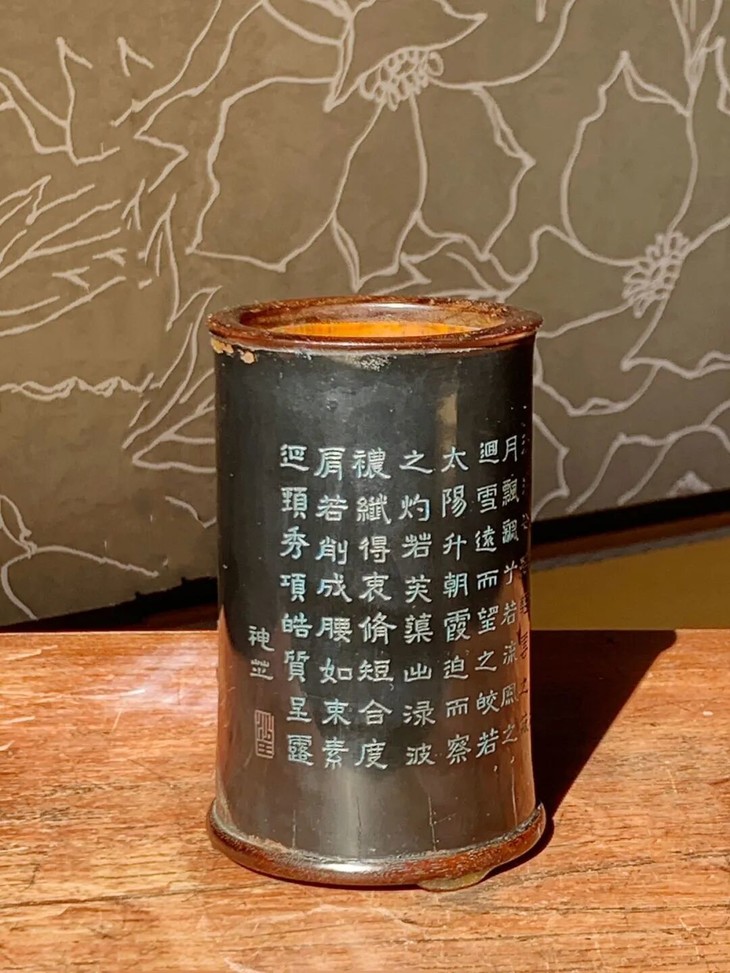 月飄颻兮若流風之
迴雪遠而望之皎若
太陽升朝霞迫而察
之灼若芙蕖出淥波
襛纖得衷脩短合度
肩若削成腰如束素
延頸秀項皓質呈露